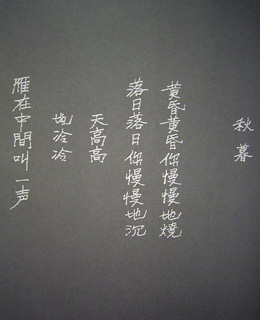 秋暮
黄昏黄昏你慢慢地燒
落日落日你慢慢地沉
天高高
地冷冷
雁在中間叫一声